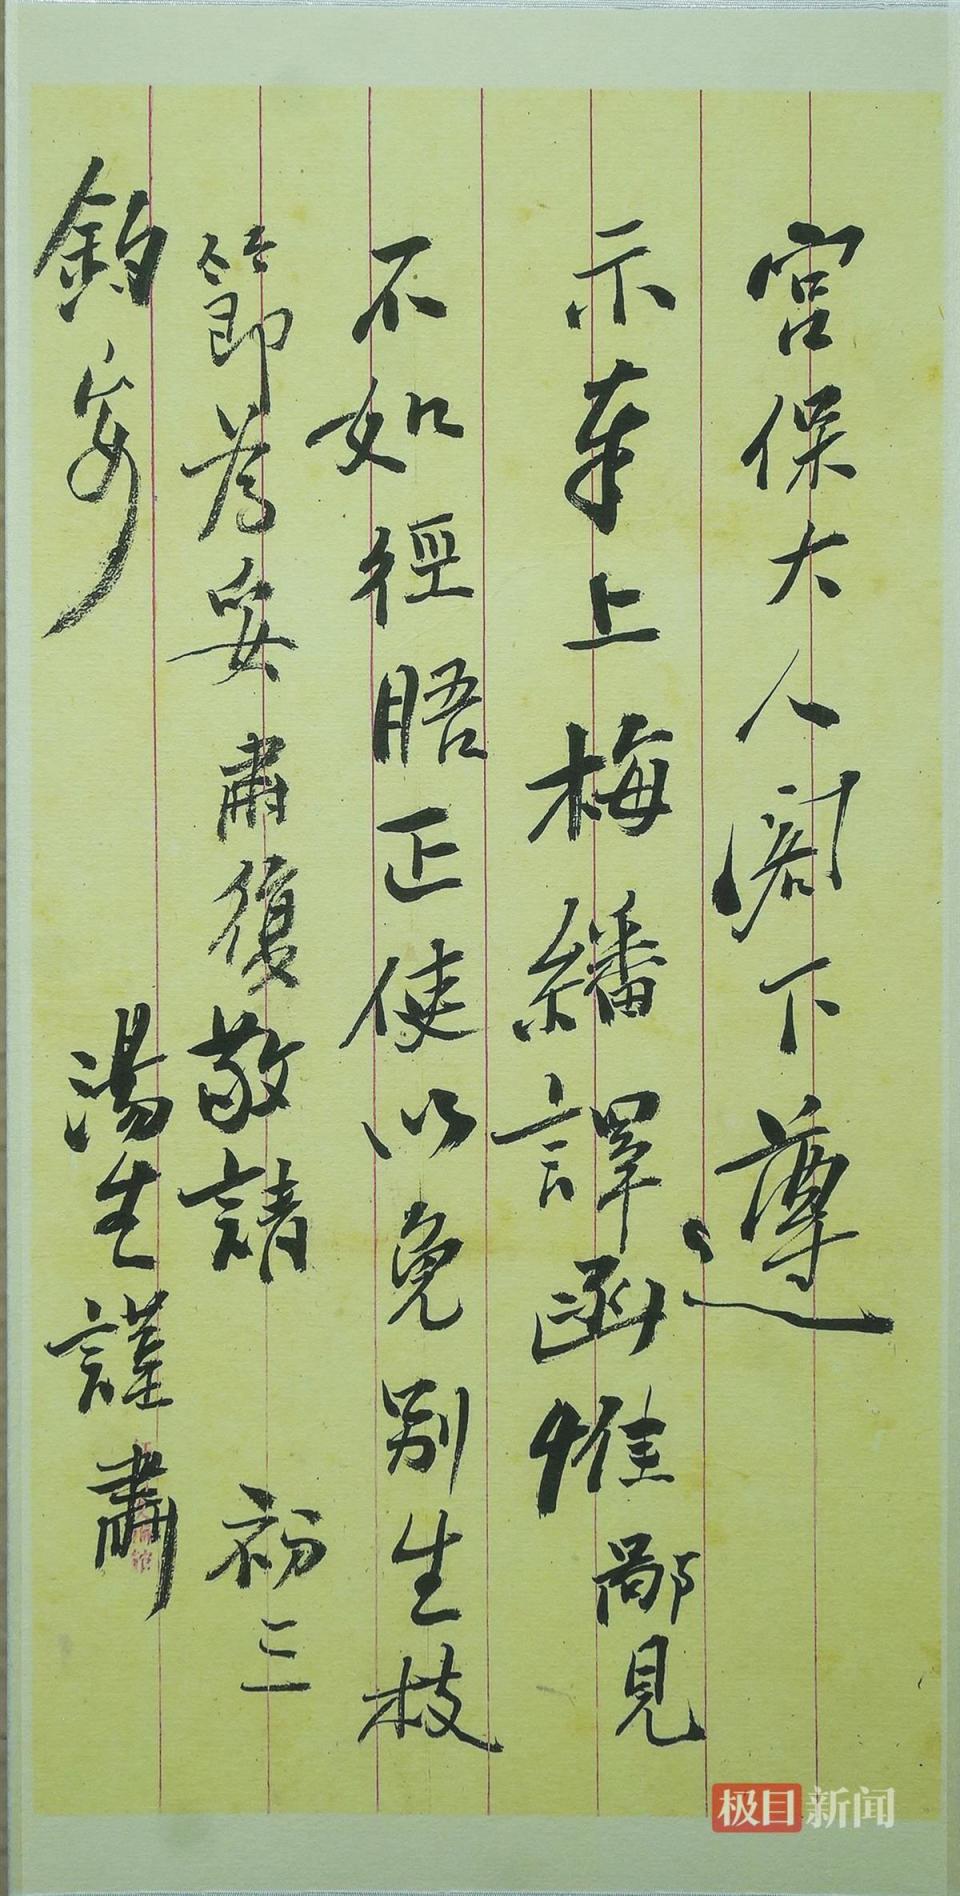 宮保大人閣下遵
示奉上梅繙譯函惟鄙見
不如徑晤正使以免別生枝
節爲妥肅復敬請　初三
鈞安　湯生謹肅
极目新闻